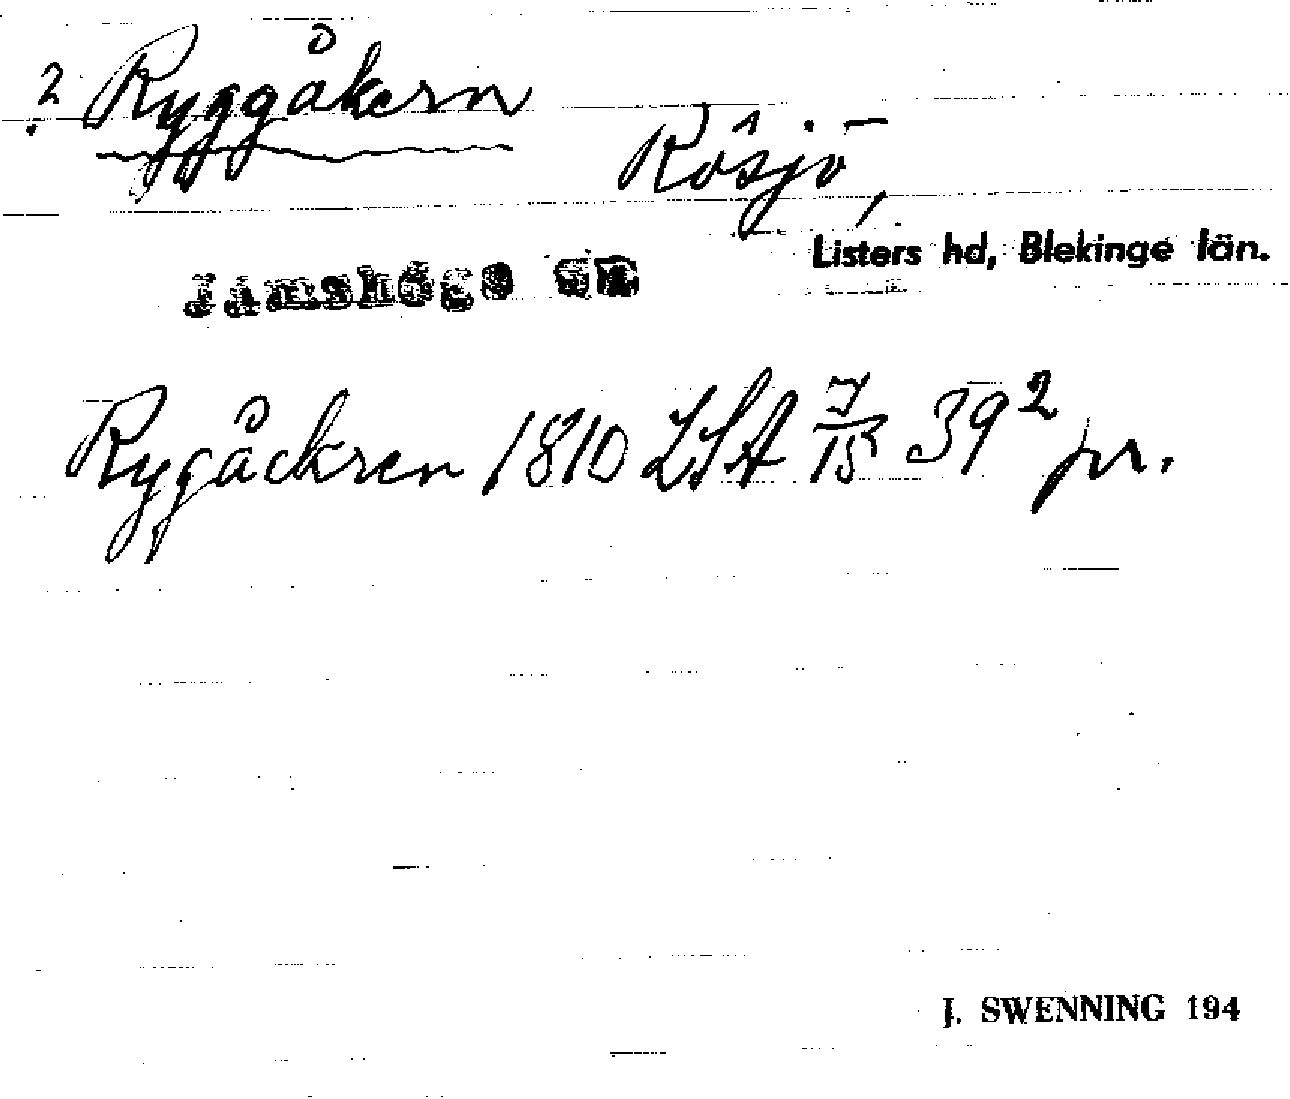 ? Ryggåkern
Rösjö,
Jämshögs sn
Listers hd, Blekinge län.
Rygåckren 1810 LSA 7/15 39² pr.
J. SWENNING 194